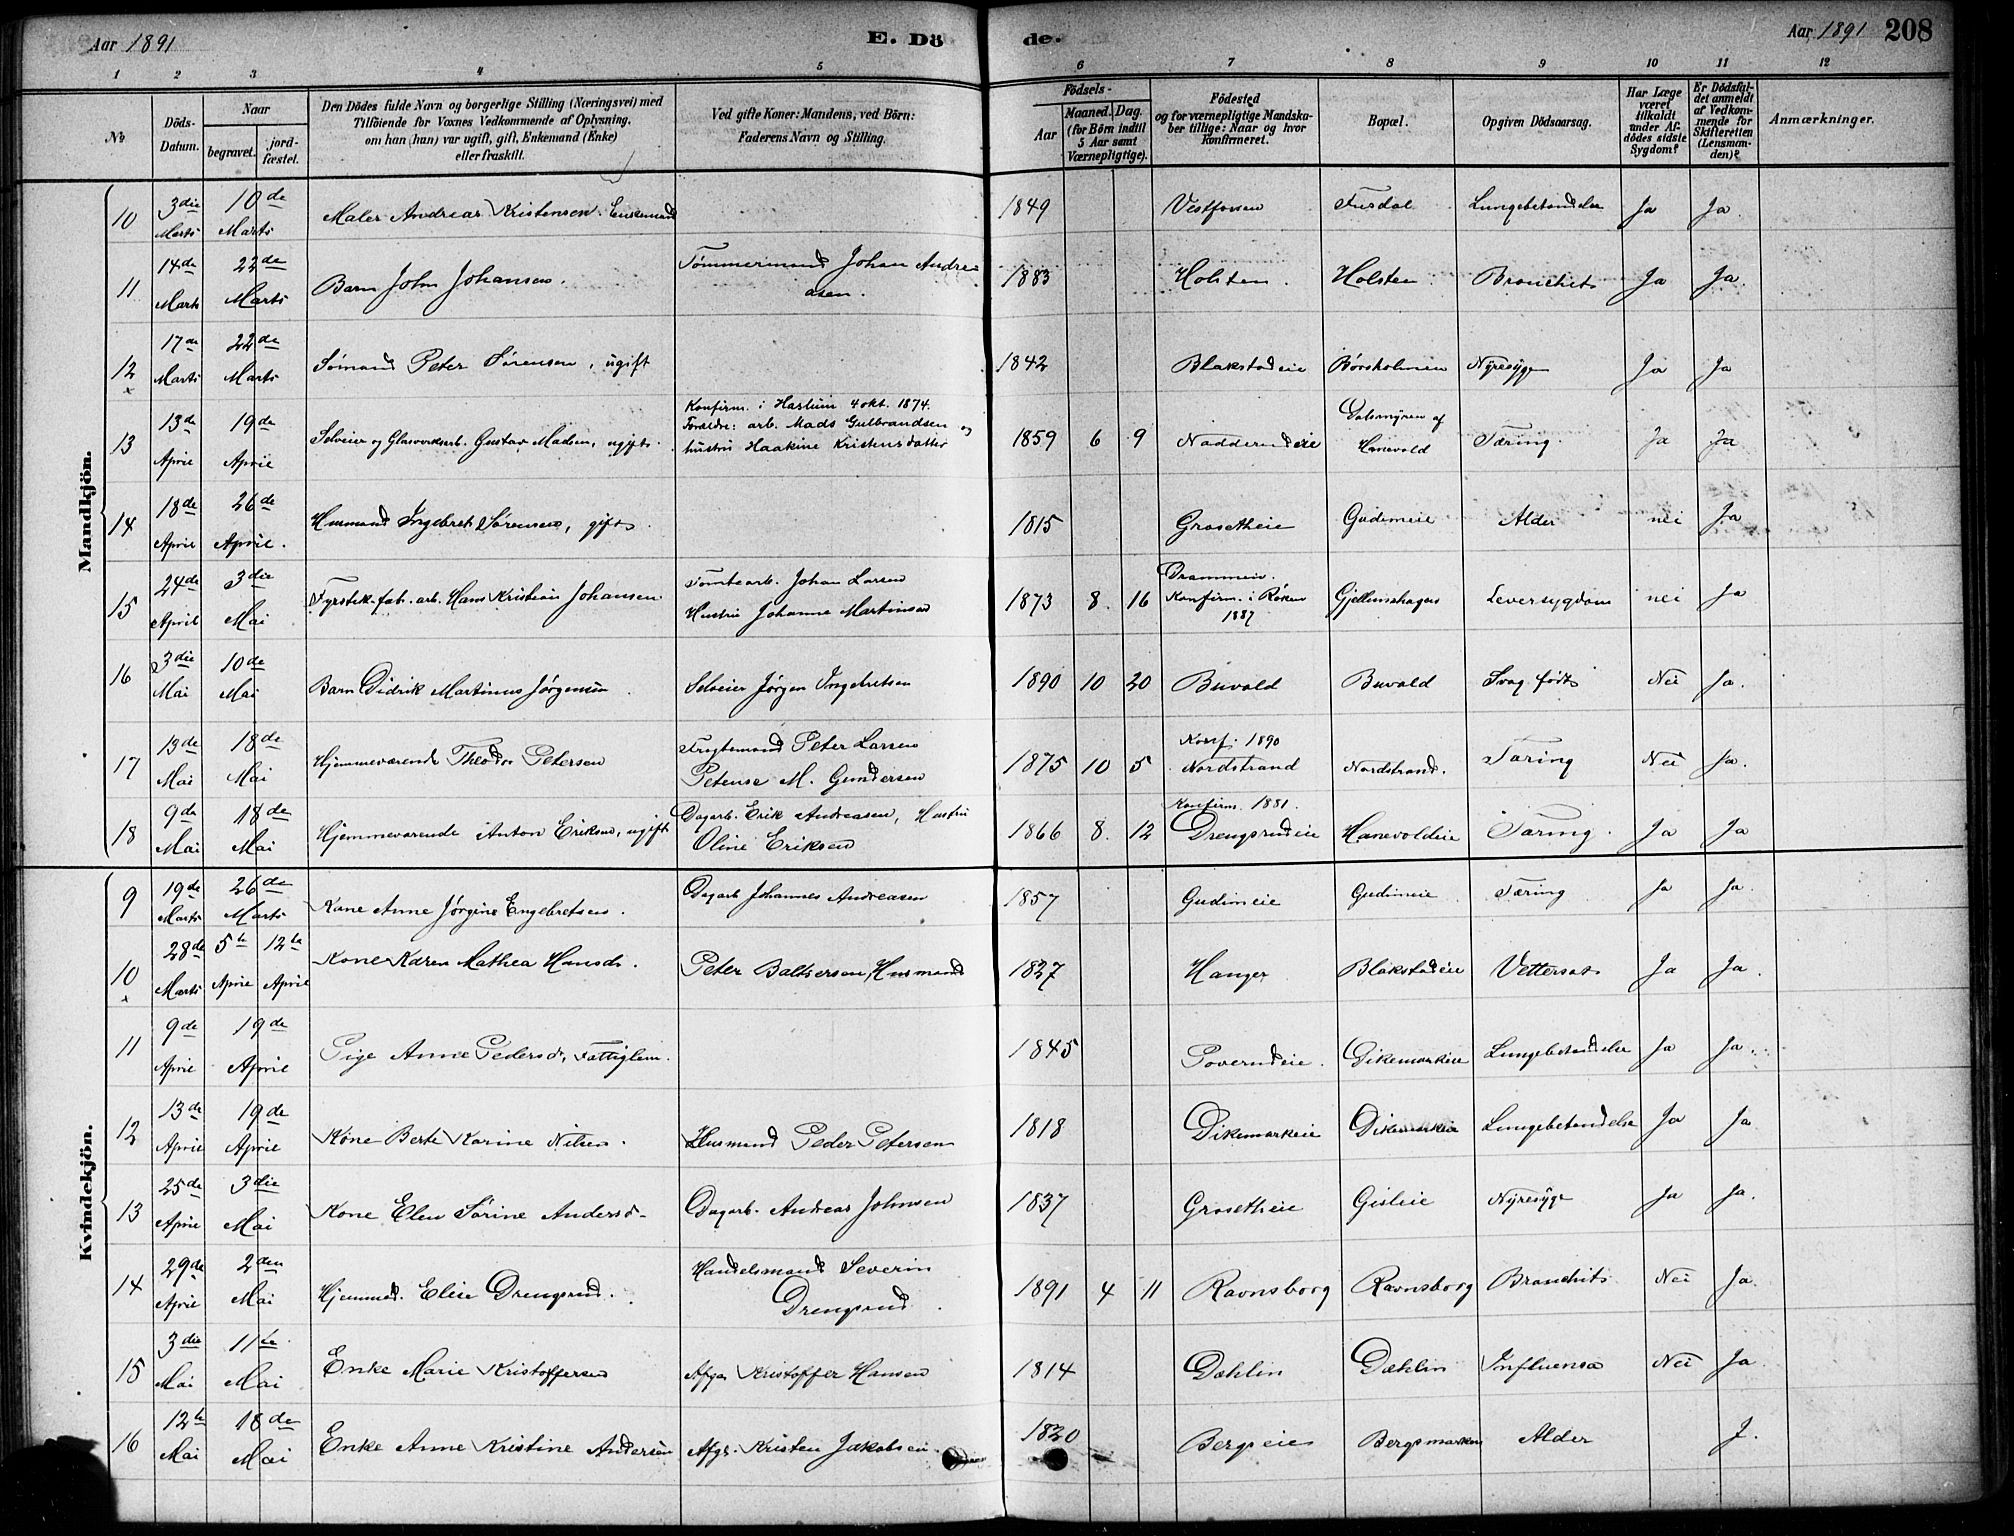 Aar 1891 E. Dö de. Aar 1891 208
1 2 3 4 5 6 7 8 9 10 11 12
No
Döds-Datum.
Naar
begravet. jord-fæstet.
Den Dödes fulde Navn og borgerlige Stilling (Næringsvei) med
Tilföiende for Voxnes Vedkommende af Oplysning,
om han (hun) var ugift, gift, Enkemand (Enke)
eller fraskilt.
Ved gifte Koner: Mandens, ved Börn:
Faderens Navn og Stilling.
Födsels-
Aar Maaned. Dag.
(for Börn indtil
5 Aar samt
Værnepligtige).
Födested
og for værnepligtige Mandska-
ber tillige: Naar og hvor
konfirmeret.
Bopæl.
Opgiven Dödsaarsag.
Har Læge
været
tilkaldt
under Af-
dödes sidste
Sygdom?
Er Dödsfal-
det anmeldt
af Vedkom-
mende for
Skifteretten
(Lensman-
den)?
Anmærkninger.
Mandkjön.
10 3die Marts 10de Marts Maler Andreas Kristensen. Enkemand 1849 Vestfossen Fusdal Lungebetændelse Ja Ja.
11 14de Marts 22de Marts Barn John Johansen. Tømmermand Johan Andreasen. 1883 Holsten. Holsten. Bronchit Ja Ja.
12 x 17de Marts 22de Marts Sømand Peter Sørensen, ugift 1842 Blakstadeie Børsholmen Nyresyge Ja Ja
13 13de April 19de April Selveier og Glasverksarb. Gustav Madsen, ugift. Konfirm. i Haslum 4 okt. 1874. Forældre: arb. Mads Gulbrandsen og hustru Haakine Kristensdatter 1859 6 9 Nadderudeie Dalsmyren af Hanevold Tæring. Ja Ja
14 18de April 26de April. Husmand Ingebret Sørensen, gift. 1815 Grosetheie Gudimeie Alder nei Ja
15 24de April 3die Mai Fyrstik.fab.arb. Hans Kristian Johansen Tomtearb. Johan Larsen Hustru Johanne Martinsen 1873 8. 16 Drammen. Konfirm. i Røken 1887 Gjellumshagen Leversygdom nei Ja
16 23die Mai 10de Mai Barn Didrik Martinius Jørgensen Selveier Jørgen Ingebretsen 1890 10 20 Buvald Buvald Svag født Nei Ja.
17 13de Mai 18de Mai Hjemmeværende Theodor Petersen Fragtemand Peter Larsen Petense M. Gundersen 1875 10 5 Konf. 1890 Nordstrand Nordstrand. Tæring Nei Ja.
18 9de Mai 18de Mai Hjemmeværende Anton Eriksen, ugift Dagarb. Erik Andreasen, Hustru Oline Eriksen 1866 8. 12 Konfirm. 1881. Drengsrudeie Hanevoldeie Tæring. Ja Ja
Kvindekjön.
9 19de Marts 26de Marts Kone Anne Jørgine Engebretsen. Dagarb Johannes Andreasen 1857 Gudimeie Gudimeie Tæring Ja Ja.
10 x 28de Marts 5te April 12te April Kone Karen Mathea Hansdr. Peter Baltsersen, Husmand 1827 Hanger Blakstadeie Vattersot Ja Ja.
11 9de April 19de April Pige Anne Pedersdr, Fattiglem. 1845 Poverudeie. Dikemarkeie Lungebetændelse Ja Ja.
12 13de April 19de April Kone Berte Karine Nilsen. Husmand Peder Petersen 1818 Dikemarkeie Dikemarkeie Lungebetændelse Ja Ja
13 25de April 3die Mai Kone Elen Sørine Andersd. Dagarb. Andreas Johnsen 1837 Grosetheie Gisleie Nyresyge Ja Ja.
14 29de April 2den Mai Hjemmed. Elise Drengsrud. Handelsmand Severin Drengsrud. 1891 4 11 Ravnsborg Ravnsborg Bronchit Nei Ja.
15 3die Mai 11te Mai Enke Marie Kristoffersen Afg. Kristoffer Hansen 1814 Dæhlin Dæhlin Influensa Nei Ja.
16 12te Mai 18de Mai Enke Anne Kristine Andersen Afg. Kristen Jakobsen 1820 Bergseie Bergsmarken Alder J.